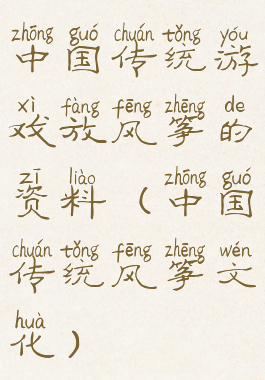 zhōng guó chuán tǒng yóu
中国传统游
xì fàng fēng zhēng de
戏放风筝的
zī liào zhōng guó
资料（中国
chuán tǒng fēng zhēng wén
传统风筝文
huà
化）